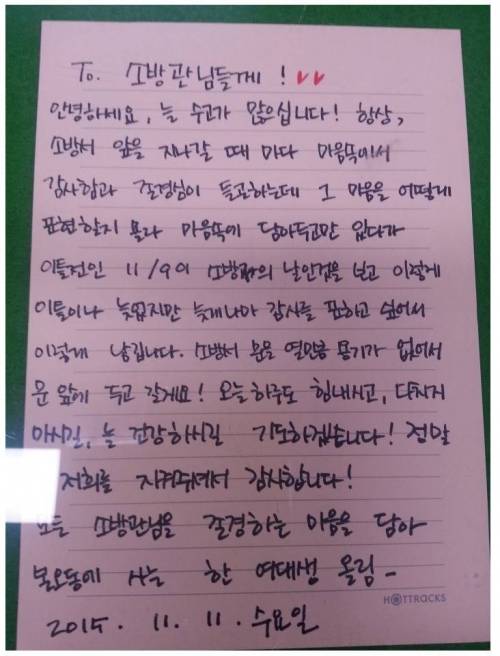 To. 소방관님들께 !
안녕하세요, 늘 수고가 많으십니다! 항상,
소방서 앞을 지나갈 때 마다 마음속에서
감사함과 존경심이 들곤하는데 그 마음을 어떻게
표현할지 몰라 마음속에 담아두고만 있다가
이틀전인 11/9이 소방관의 날인것을 보고 이렇게
이틀이나 늦었지만 늦게나마 감사를 표하고 싶어서
이렇게 남깁니다. 소방서 문을 열만큼 용기가 없어서
문 앞에 두고 갈게요! 오늘하루도 힘내시고, 다치지
마시길, 늘 건강하시길 기도하겠습니다! 정말
저희를 지켜주셔서 감사합니다!
모든 소방관님을 존경하는 마음을 담아
불로동에 사는 한 여대생 올림-
HOTTRACKS
2015. 11. 11. 수요일